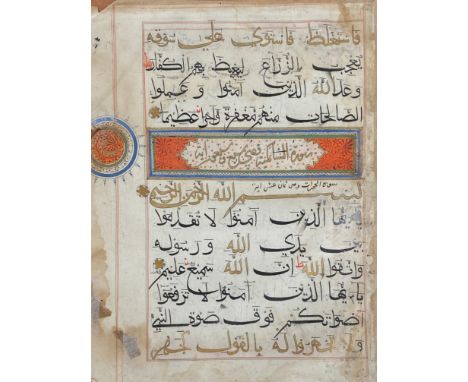 فاستغلظ فاستوى على سوقه
يعجب الزراع ليغيظ بهم الكفار
وعد الله الذين آمنوا وعملوا
الصالحات منهم مغفرة واجرا عظيما
سورة
سورة الحجرات وهي ثمان عشر آية
بسم الله الرحمن الرحيم
يا ايها الذين آمنوا لا تقدموا
بين يدي الله ورسوله
واتقوا الله ان الله سميع عليم
يا ايها الذين آمنوا لا ترفعوا
اصواتكم فوق صوت النبي
ولا تجهروا له بالقول كجهر